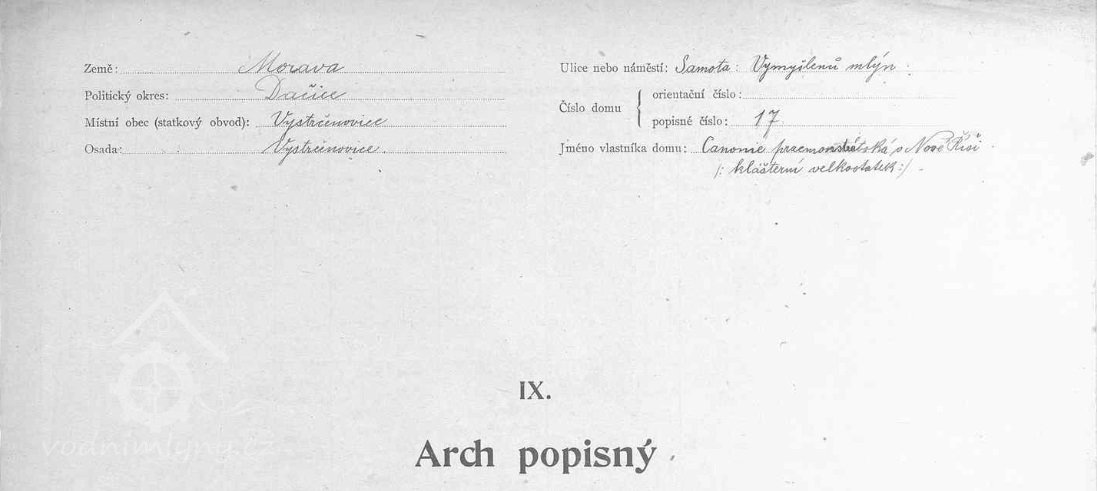 Země: Morava
Politický okres: Dačice
Místní obec (statkový obvod): Vystrčenovice
Osada: Vystrčenovice
Ulice nebo náměstí: Samota: Vymyšlenů mlýn
Číslo domu
orientační číslo:
popisné číslo: 17
Jméno vlastníka domu: Canonie praemonstrátská v Nové Říši
/: klášterní velkostatek :/
IX.
Arch popisný
vodnimlyny.cz